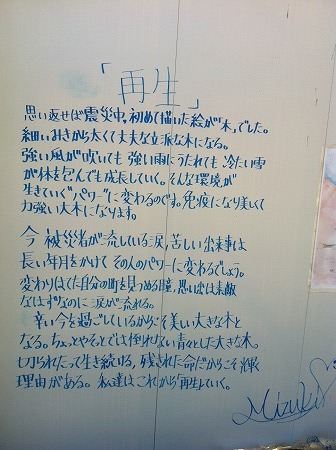 「再生」
思い返せば震災中、初めて描いた絵が「木」でした。
細いみきから太くて丈夫な立派な木になる。
強い風が吹いても 強い雨にうたれても 冷たい雪
が枝を包んでも成長していく。そんな環境が
生きていく"パワー"に変わるのです。免疫になり美しくて
力強い大木になります。
今 被災者が流している涙、苦しい出来事は
長い年月をかけて その人のパワーに変わるでしょう。
変わりはてた自分の町を見つめる瞳、思い出は素敵
なはずなのに 涙が流れる。
辛い今を過ごしているからこそ美しい大きな木と
なる。ちょっとやそっとでは倒れない青々とした大きな木。
切られたって生き続ける、残された命だからこそ輝く
理由がある。私達はこれから「再生」していく。
Mizuki